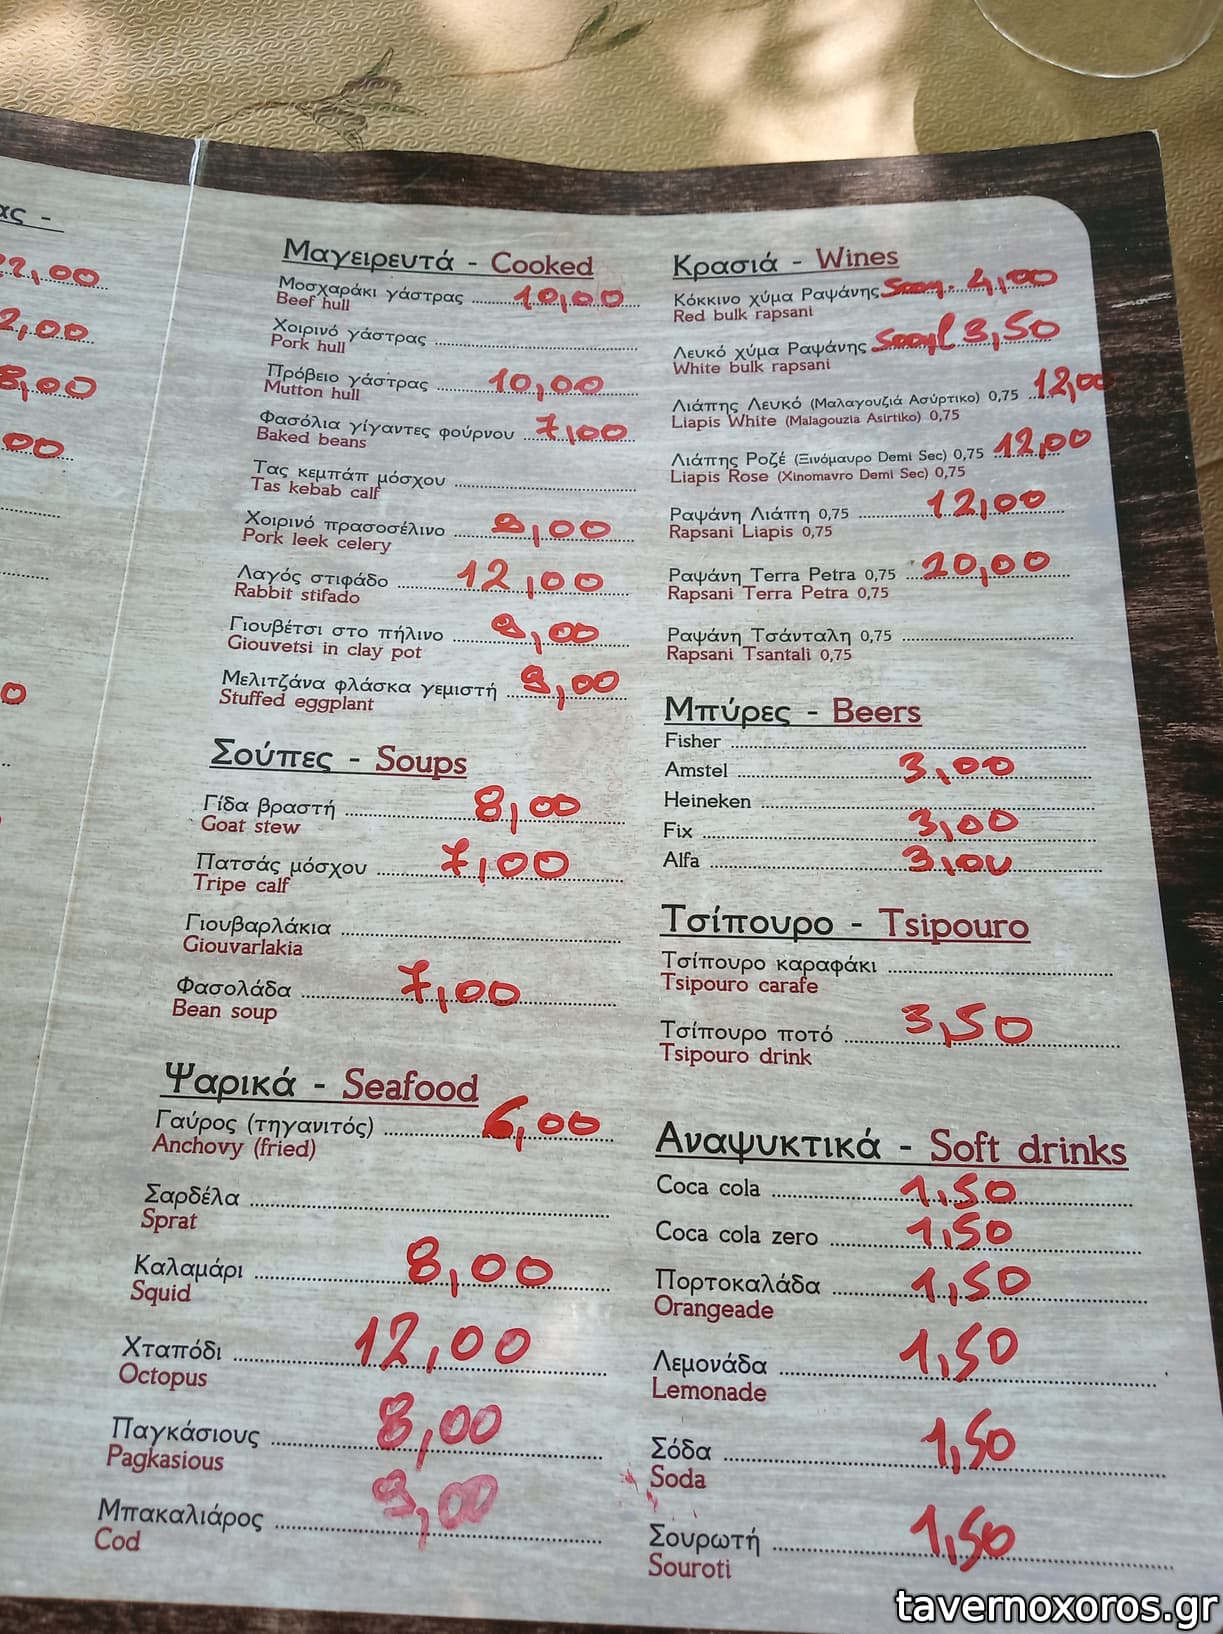 ας -
2,00
2,00
8,00
00
0
Μαγειρευτά - Cooked
Μοσχαράκι γάστρας 10,00
Beef hull
Χοιρινό γάστρας
Pork hull
Πρόβειο γάστρας 10,00
Mutton hull
Φασόλια γίγαντες φούρνου 7,00
Baked beans
Τας κεμπάπ μόσχου
Tas kebab calf
Χοιρινό πρασοσέλινο
Pork leek celery
Λαγός στιφάδο 12,00
Rabbit stifado
Γιουβέτσι στο πήλινο
Giouvetsi in clay pot
Μελιτζάνα φλάσκα γεμιστή 9,00
Stuffed eggplant
Σούπες - Soups
Γίδα βραστή 8,00
Goat stew
Πατσάς μόσχου 7,00
Tripe calf
Γιουβαρλάκια
Giouvarlakia
Φασολάδα 7,00
Bean soup
Ψαρικά - Seafood
Γαύρος (τηγανιτός) 6,00
Anchovy (fried)
Σαρδέλα
Sprat
Καλαμάρι 8,00
Squid
Χταπόδι 12,00
Octopus
Παγκάσιους 8,00
Pagkasious
Μπακαλιάρος 9,00
Cod
Κρασιά - Wines
Κόκκινο χύμα Ραψάνης 4,00
Red bulk rapsani
Λευκό χύμα Ραψάνης 500ml 3,50
White bulk rapsani
Λιάπης Λευκό (Μαλαγουζιά Ασύρτικο) 0,75 12,00
Liapis White (Malagouzia Asirtiko) 0,75
Λιάπης Ροζέ (Ξινόμαυρο Demi Sec) 0,75 12,00
Liapis Rose (Xinomavro Demi Sec) 0,75
Ραψάνη Λιάπη 0,75 12,00
Rapsani Liapis 0,75
Ραψάνη Terra Petra 0,75 20,00
Rapsani Terra Petra 0,75
Ραψάνη Τσάνταλη 0,75
Rapsani Tsantali 0,75
Μπύρες - Beers
Fisher
Amstel 3,00
Heineken
Fix 3,00
Alfa 3,00
Τσίπουρο - Tsipouro
Τσίπουρο καραφάκι
Tsipouro carafe
Τσίπουρο ποτό 3,50
Tsipouro drink
Αναψυκτικά - Soft drinks
Coca cola 1,50
Coca cola zero 1,50
Πορτοκαλάδα 1,50
Orangeade
Λεμονάδα 1,50
Lemonade
Σόδα 1,50
Soda
Σουρωτή 1,50
Souroti
tavernoxoros.gr